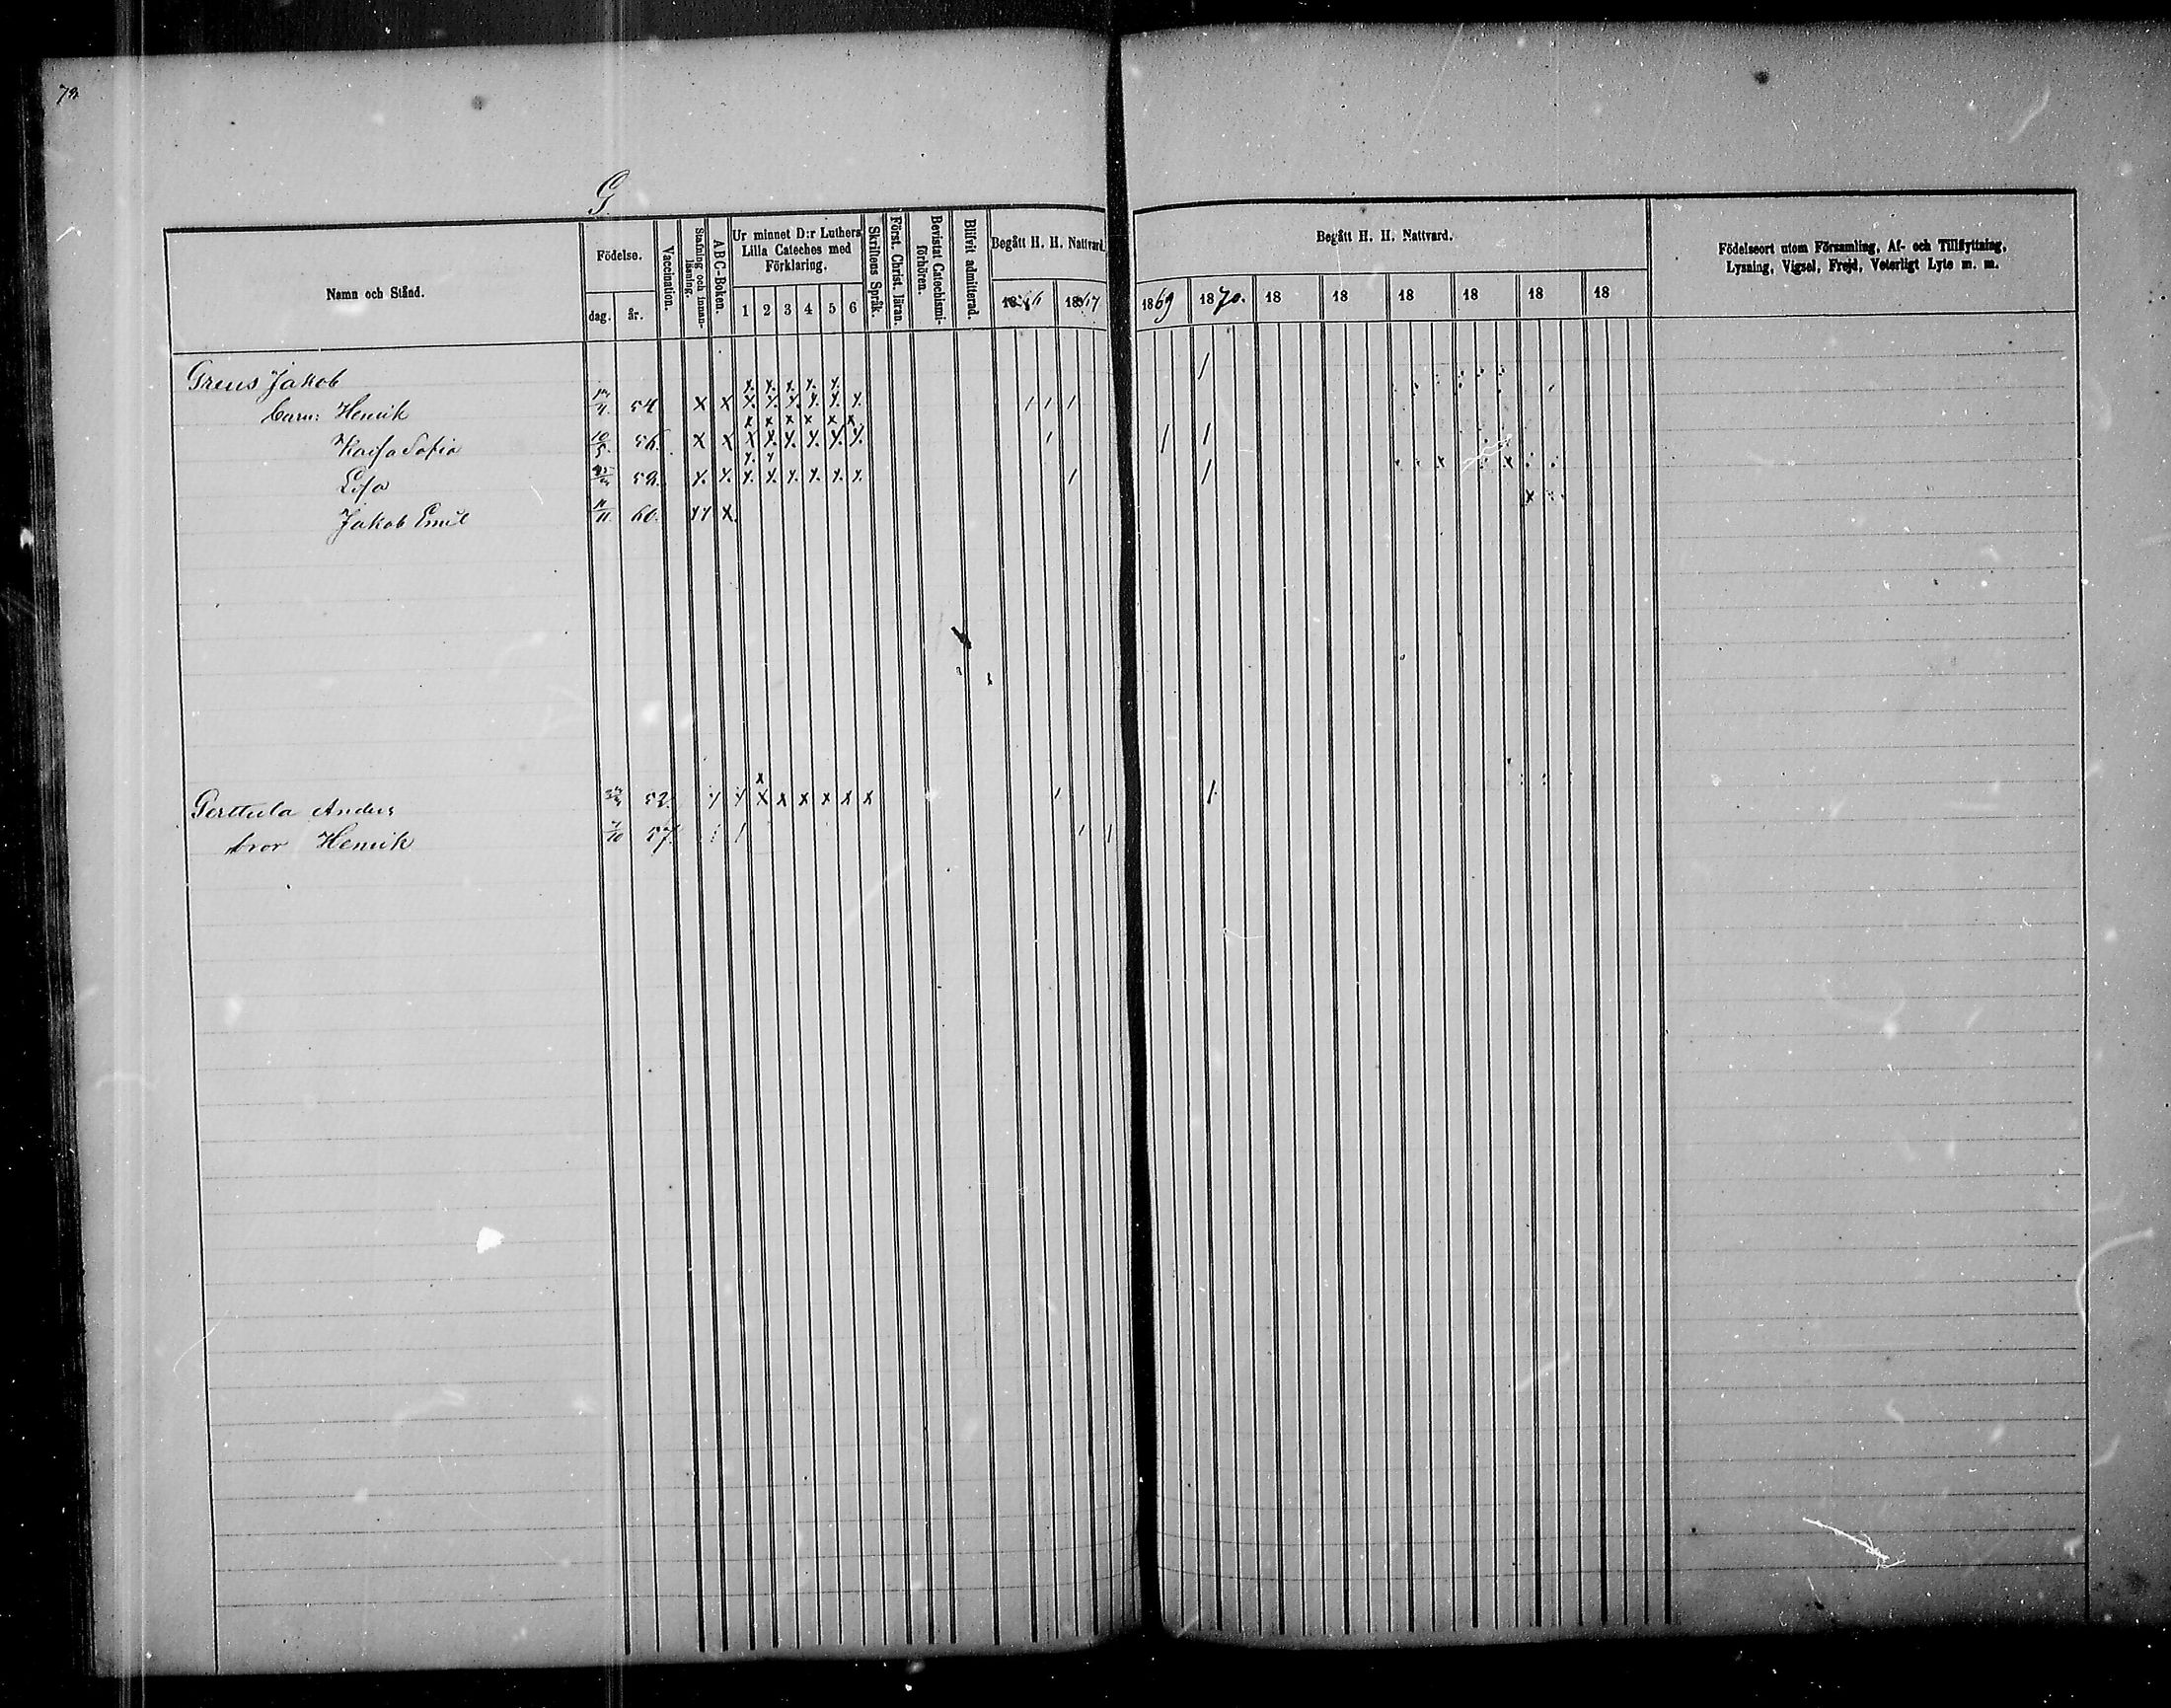 G.
Namn och Stånd.
Födelse.
dag.
år.
Vaccination.
Stafning och innanläsning.
ABC-Boken.
Ur minnet D:r Luthers Lilla Cateches med Förklaring.
1 2 3 4 5 6
Skriftens Språk.
Först. Christ. läran.
Bevistat Catechismiförhören.
Blifvit admitterad.
Begått H. H. Nattvard.
1866 1867
Begått H. H. Nattvard.
1869 1870. 18 18 18 18 18 18
Födelseort utom Församling, Af- och Tillflyttning,
Lysning, Vigsel, Frejd, Veterligt Lyte m. m.
Greus Jakob
barn: Henrik 54 x x x x x x x x
Kaisa Sofia 10/5. 56. x x x x x x x x
Lisa x x x x x x x x
Jakob Emil 11. 60. x x x
Perttula Anders 52. x x x x x x x x
bror Henrik 7/10 57.